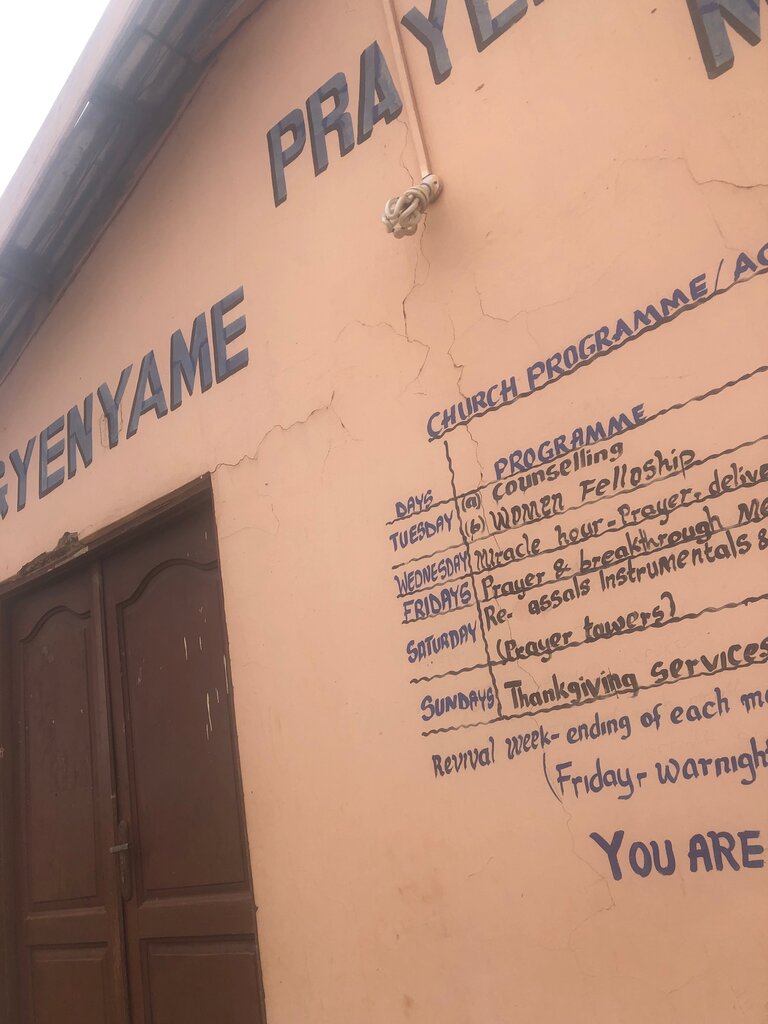 PRAYE
GYENYAME
CHURCH PROGRAMME/AC
DAYS PROGRAMME
TUESDAY (a) counselling
(b) WOMEN Felloship
WEDNESDAY Miracle hour-Prayer, delive
FRIDAYS Prayer & breakthrough Me
SATURDAY Re-assals Instrumentals &
(Prayer towers)
SUNDAYS Thankgiving services
Revival week-ending of each mo
(Friday-warnigh
YOU ARE